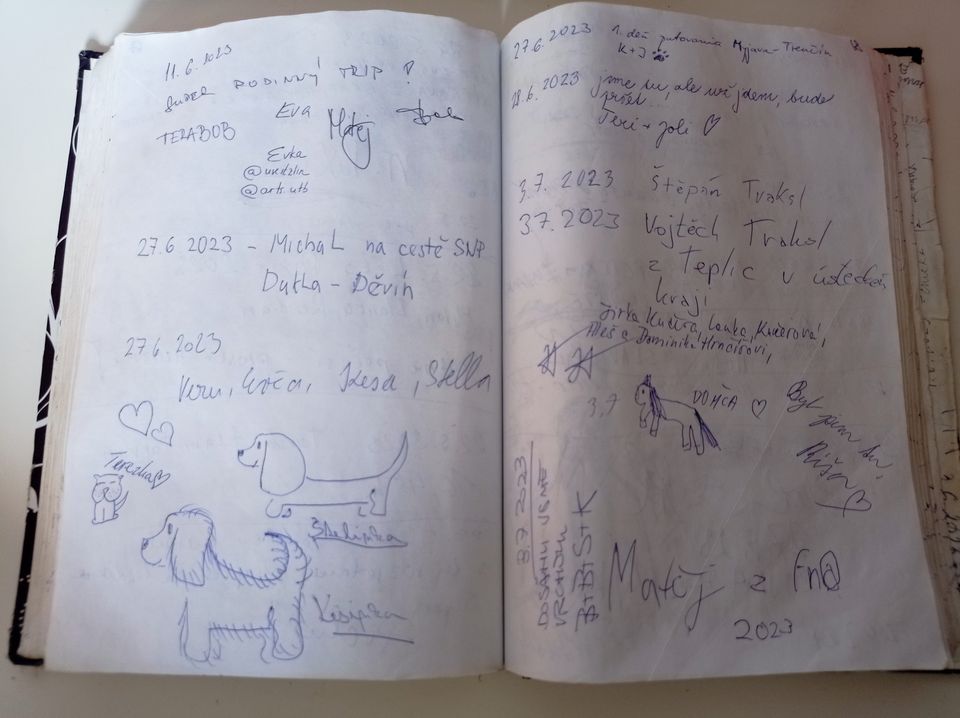 11.6.2023
SUPER RODINNÝ TRIP !
Eva
Matěj
TERABOB
Evka
@ukdzlin
@arts.utb
27.6 2023 - Michal na cestě SNP
Dukla - Děvín
27.6.2023
Veru, Kesa, Stella
Terezka
Štelinka
Kesinka
27.6.2023 1. deň putovania Myjava - Trenčín
K+J
28.6.2023 jsme tu, ale už jdem, bude
pršet...
Teri + Joli
3.7.2023 Štěpán Trakal
3.7.2023 Vojtěch Trakal
z Teplic v ústeckém
kraji
Jirka Kučera, Lenka Kučerová,
Aleš a Dominika Hrnčířovi,
3.7 DOMČA
Byl jsem tu.
3.7.2023
DOSÁHLI VŠÍCHNI
VRCHOLU
B+B+S+K
Matěj z Fn@
2023